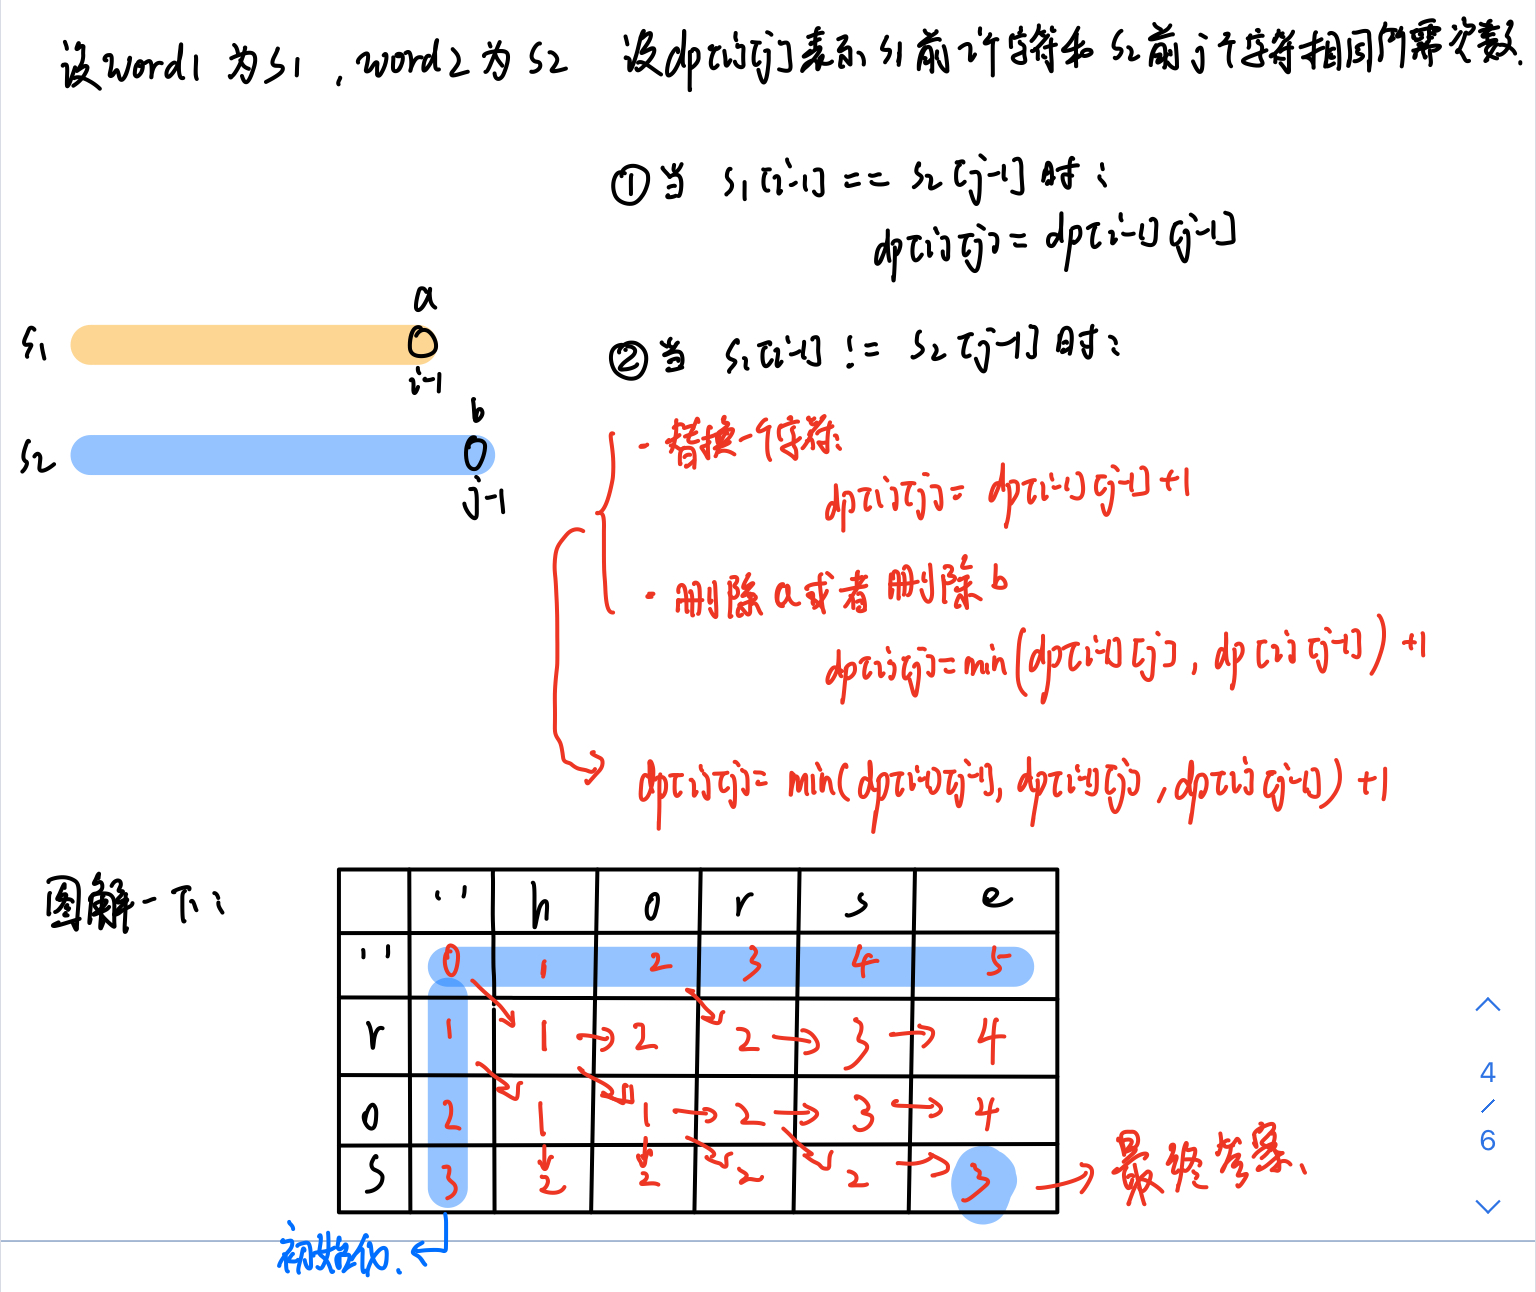 设word1 为s1 , word2 为 s2 设dp[i][j]表示s1前i个字符和s2前j个字符相同所需次数.
①当 s1[i-1] == s2[j-1] 时:
dp[i][j] = dp[i-1][j-1]
a
s1
i-1
②当 s1[i-1] != s2[j-1] 时:
b
s2
j-1
· 替换一个字符:
dp[i][j] = dp[i-1][j-1] +1
· 删除a或者删除b
dp[i][j]=min(dp[i-1][j], dp[i][j-1]) +1
dp[i][j]= min(dp[i-1][j-1], dp[i-1][j], dp[i][j-1]) +1
图解一下:
'' h o r s e
'' 0 1 2 3 4 5
r 1 1 2 2 3 4
o 2 1 1 2 3 4
s 3 2 2 2 2 3
最终答案.
初始化.
4
/
6